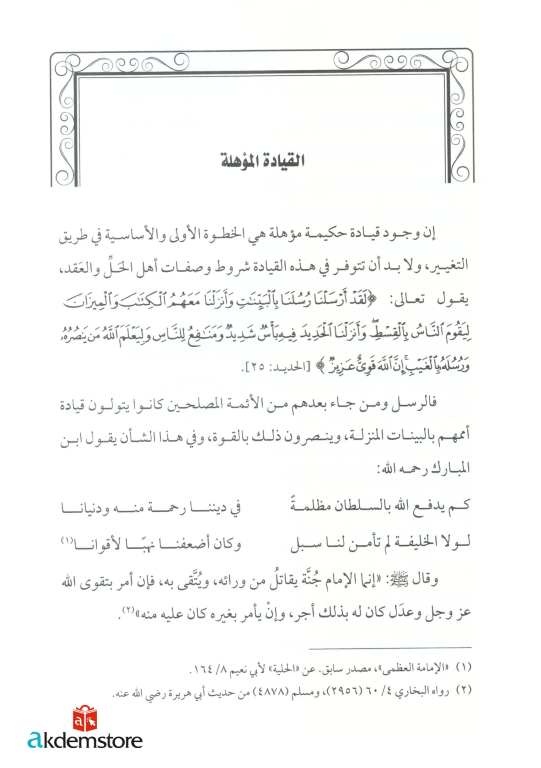 القيادة المؤهلة
إن وجود قيادة حكيمة مؤهلة هي الخطوة الأولى والأساسية في طريق
التغيير، ولا بد أن تتوفر في هذه القيادة شروط وصفات أهل الحَلِّ والعَقد،
يقول تعالى: ﴿لَقَدْ أَرْسَلْنَا رُسُلَنَا بِالْبَيِّنَٰتِ وَأَنزَلْنَا مَعَهُمُ الْكِتَٰبَ وَالْمِيزَانَ
لِيَقُومَ النَّاسُ بِالْقِسْطِ وَأَنزَلْنَا الْحَدِيدَ فِيهِ بَأْسٌ شَدِيدٌ وَمَنَٰفِعُ لِلنَّاسِ وَلِيَعْلَمَ اللَّهُ مَن يَنصُرُهُ
وَرُسُلَهُ بِالْغَيْبِ إِنَّ اللَّهَ قَوِىٌّ عَزِيزٌ﴾ [الحديد: ٢٥].
فالرسل ومن جاء بعدهم من الأئمة المصلحين كانوا يتولون قيادة
أممهم بالبينات المنزلة، وينصرون ذلك بالقوة، وفي هذا الشأن يقول ابن
المبارك رحمه الله:
كم يدفع الله بالسلطان مظلمةً في ديننا رحمة منه ودنيانا
لولا الخليفة لم تأمن لنا سبل وكان أضعفنا نهبًا لأقوانا(١)
وقال ﷺ: «إنما الإمام جُنَّة يقاتلُ من ورائه، ويُتَّقى به، فإن أمر بتقوى الله
عز وجل وعدَل كان له بذلك أجر، وإنْ يأمر بغيره كان عليه منه»(٢).
(١) «الإمامة العظمى»، مصدر سابق. عن «الحلية» لأبي نعيم ٨/ ١٦٤.
(٢) رواه البخاري ٤/ ٦٠ (٢٩٥٦)، ومسلم (٤٨٧٨) من حديث أبي هريرة رضي الله عنه.
akdemstore